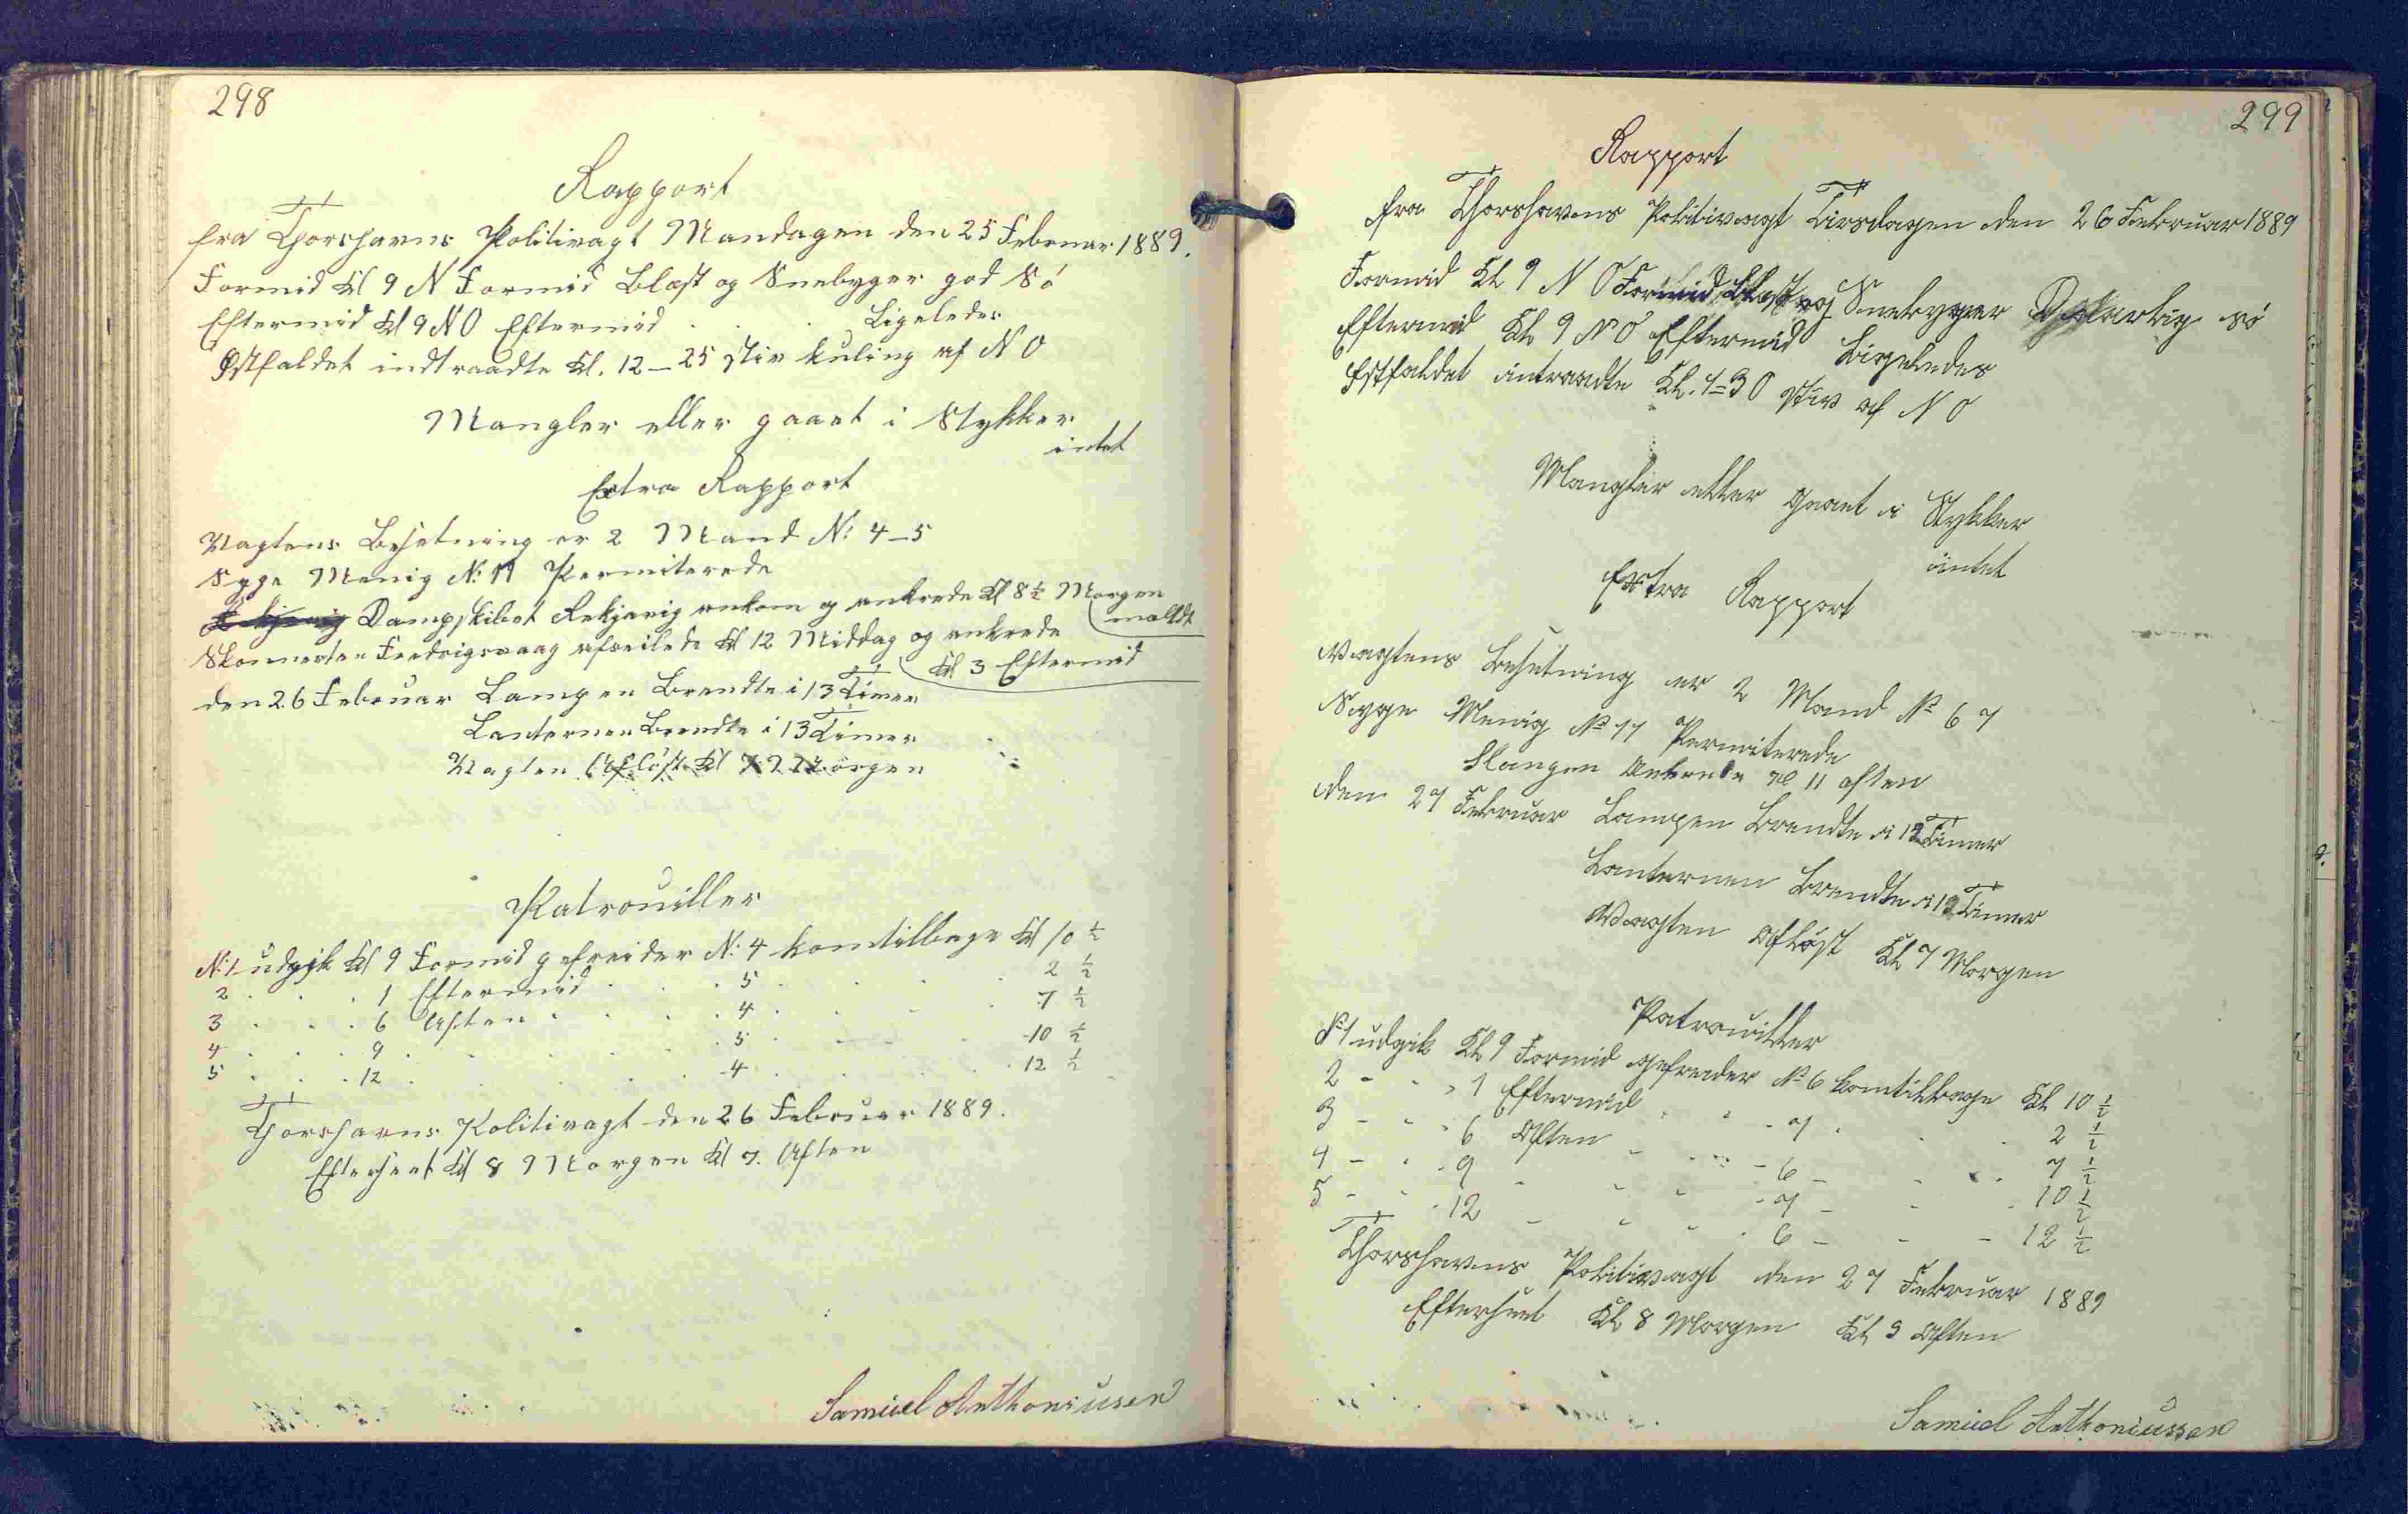 298
Rapport
fra Thorshavns Politivagt Mandagen den 25 Februar 1889.
Formid Kl 9 N Formid Blæst og Sneebyger god Sö
Eftermid Kl 9 NO Eftermid . . . Ligeledes
Østfaldet indtraadte Kl. 12–25 stiv kuling af NO
Mangler eller gaaet i Stykker
intet
Extra Rapport
Vagtens Besetning er 2 Mand N: 4–5
Syge Menig N: 11 Permiterede
Dampskibet Rekjavig ankom og ankrede Kl 8½ Morgen
meldt
Skonnerten Fredrigsvaag afseilede Kl 12 Middag og ankrede
Kl 3 Eftermid
den 26 Februar Lampen Brendte i 13 Timer
Lanternen Brendte i 13 Timer
Vagten Aflöst Kl 7 Morgen
Patrouiller
N: 1 udgik Kl 9 Formid gefreider N: 4 komtilbage Kl 10 ½
2 . . . 1 Eftermid . . . 5 . . . 2 ½
3 . . . 6 Aften . . . 4 . . . 7 ½
4 . . . 9 . . . 5 . . . 10 ½
5 . . . 12 . . . 4 . . . 12 ½
Thorshavns Politivagt den 26 Februar 1889.
Efterseet Kl 8 Morgen Kl 7. Aften
Samuel Anthoniusen
299
Rapport
fra Thorshavens Politivagt Tirsdagen den 26 Februar 1889
Formid Kl 9 NO Formid Blæst og Sneebyger sö
Eftermid Kl 9 NO Eftermid Ligeledes
Østfaldet intraadte Kl. 1=30 stiv af NO
Mangler eller gaaet i Stykker
intet
Extra Rapport
Vagtens Besetning er 2 Mand No 6 7
Syge Menig No 11 Permiterede
Slangen Ankrede Kl 11 aften
den 27 Februar Lampen Brendte i 12 Timer
Lanternen Brendte i 12 Timer
Vagten aflöst Kl 7 Morgen
Patrouiller
No 1 udgik Kl 9 Formid gefreider No 6 komtilbage Kl 10 ½
2 - - - 1 Eftermid - - - 7 - - - 2 ½
3 - - - 6 Aften - - - 6 - - - 7 ½
4 - - - 9 - - - 7 - - - 10 ½
5 - - - 12 - - - 6 - - - 12 ½
Thorshavens Politivagt den 27 Februar 1889
Efterseet Kl 8 Morgen Kl 9 Aften
Samuel Anthoniussen